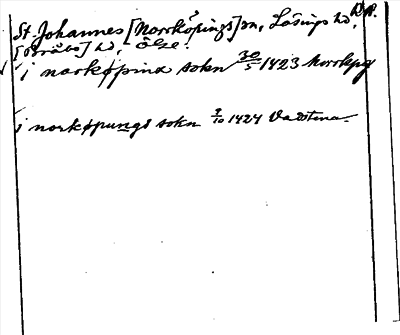 St Johannes [Norrköpings] sn, Lösings hd,
[Bråbo] hd, Ögze.
i norkøpinx sokn 30/5 1423 Norrkpg
i norkøpungs sokn 2/10 1424 Vadstena